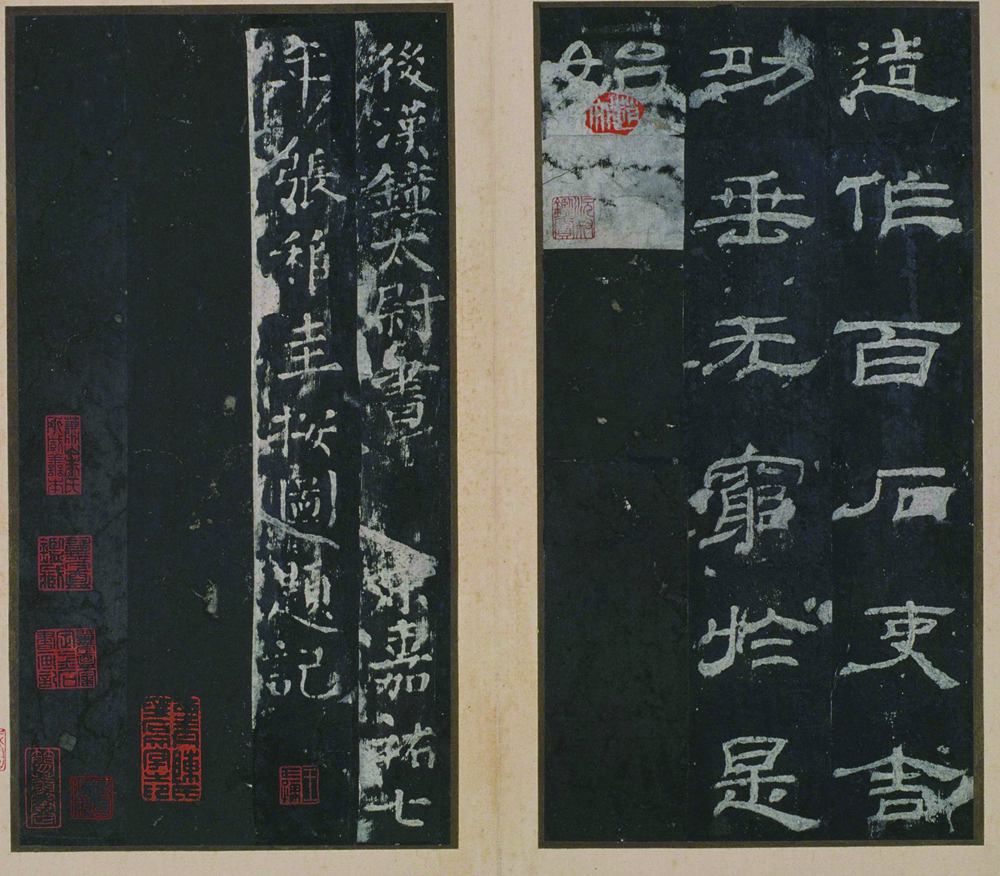 造作百石吏舍
功垂无窮於是
始
後漢鍾太尉書宋嘉祐七
年張稚圭按圖題記